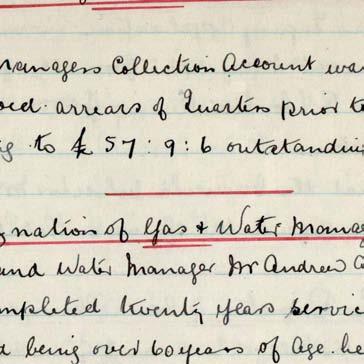 Managers Collection Account wa
oed arrears of Quarters prior t
g to £57:9:6 outstandin
gnation of Gas & Water Manag
and Water Manager Mr Andrew
mpleted twenty years servic
d being over 60 years of Age ha